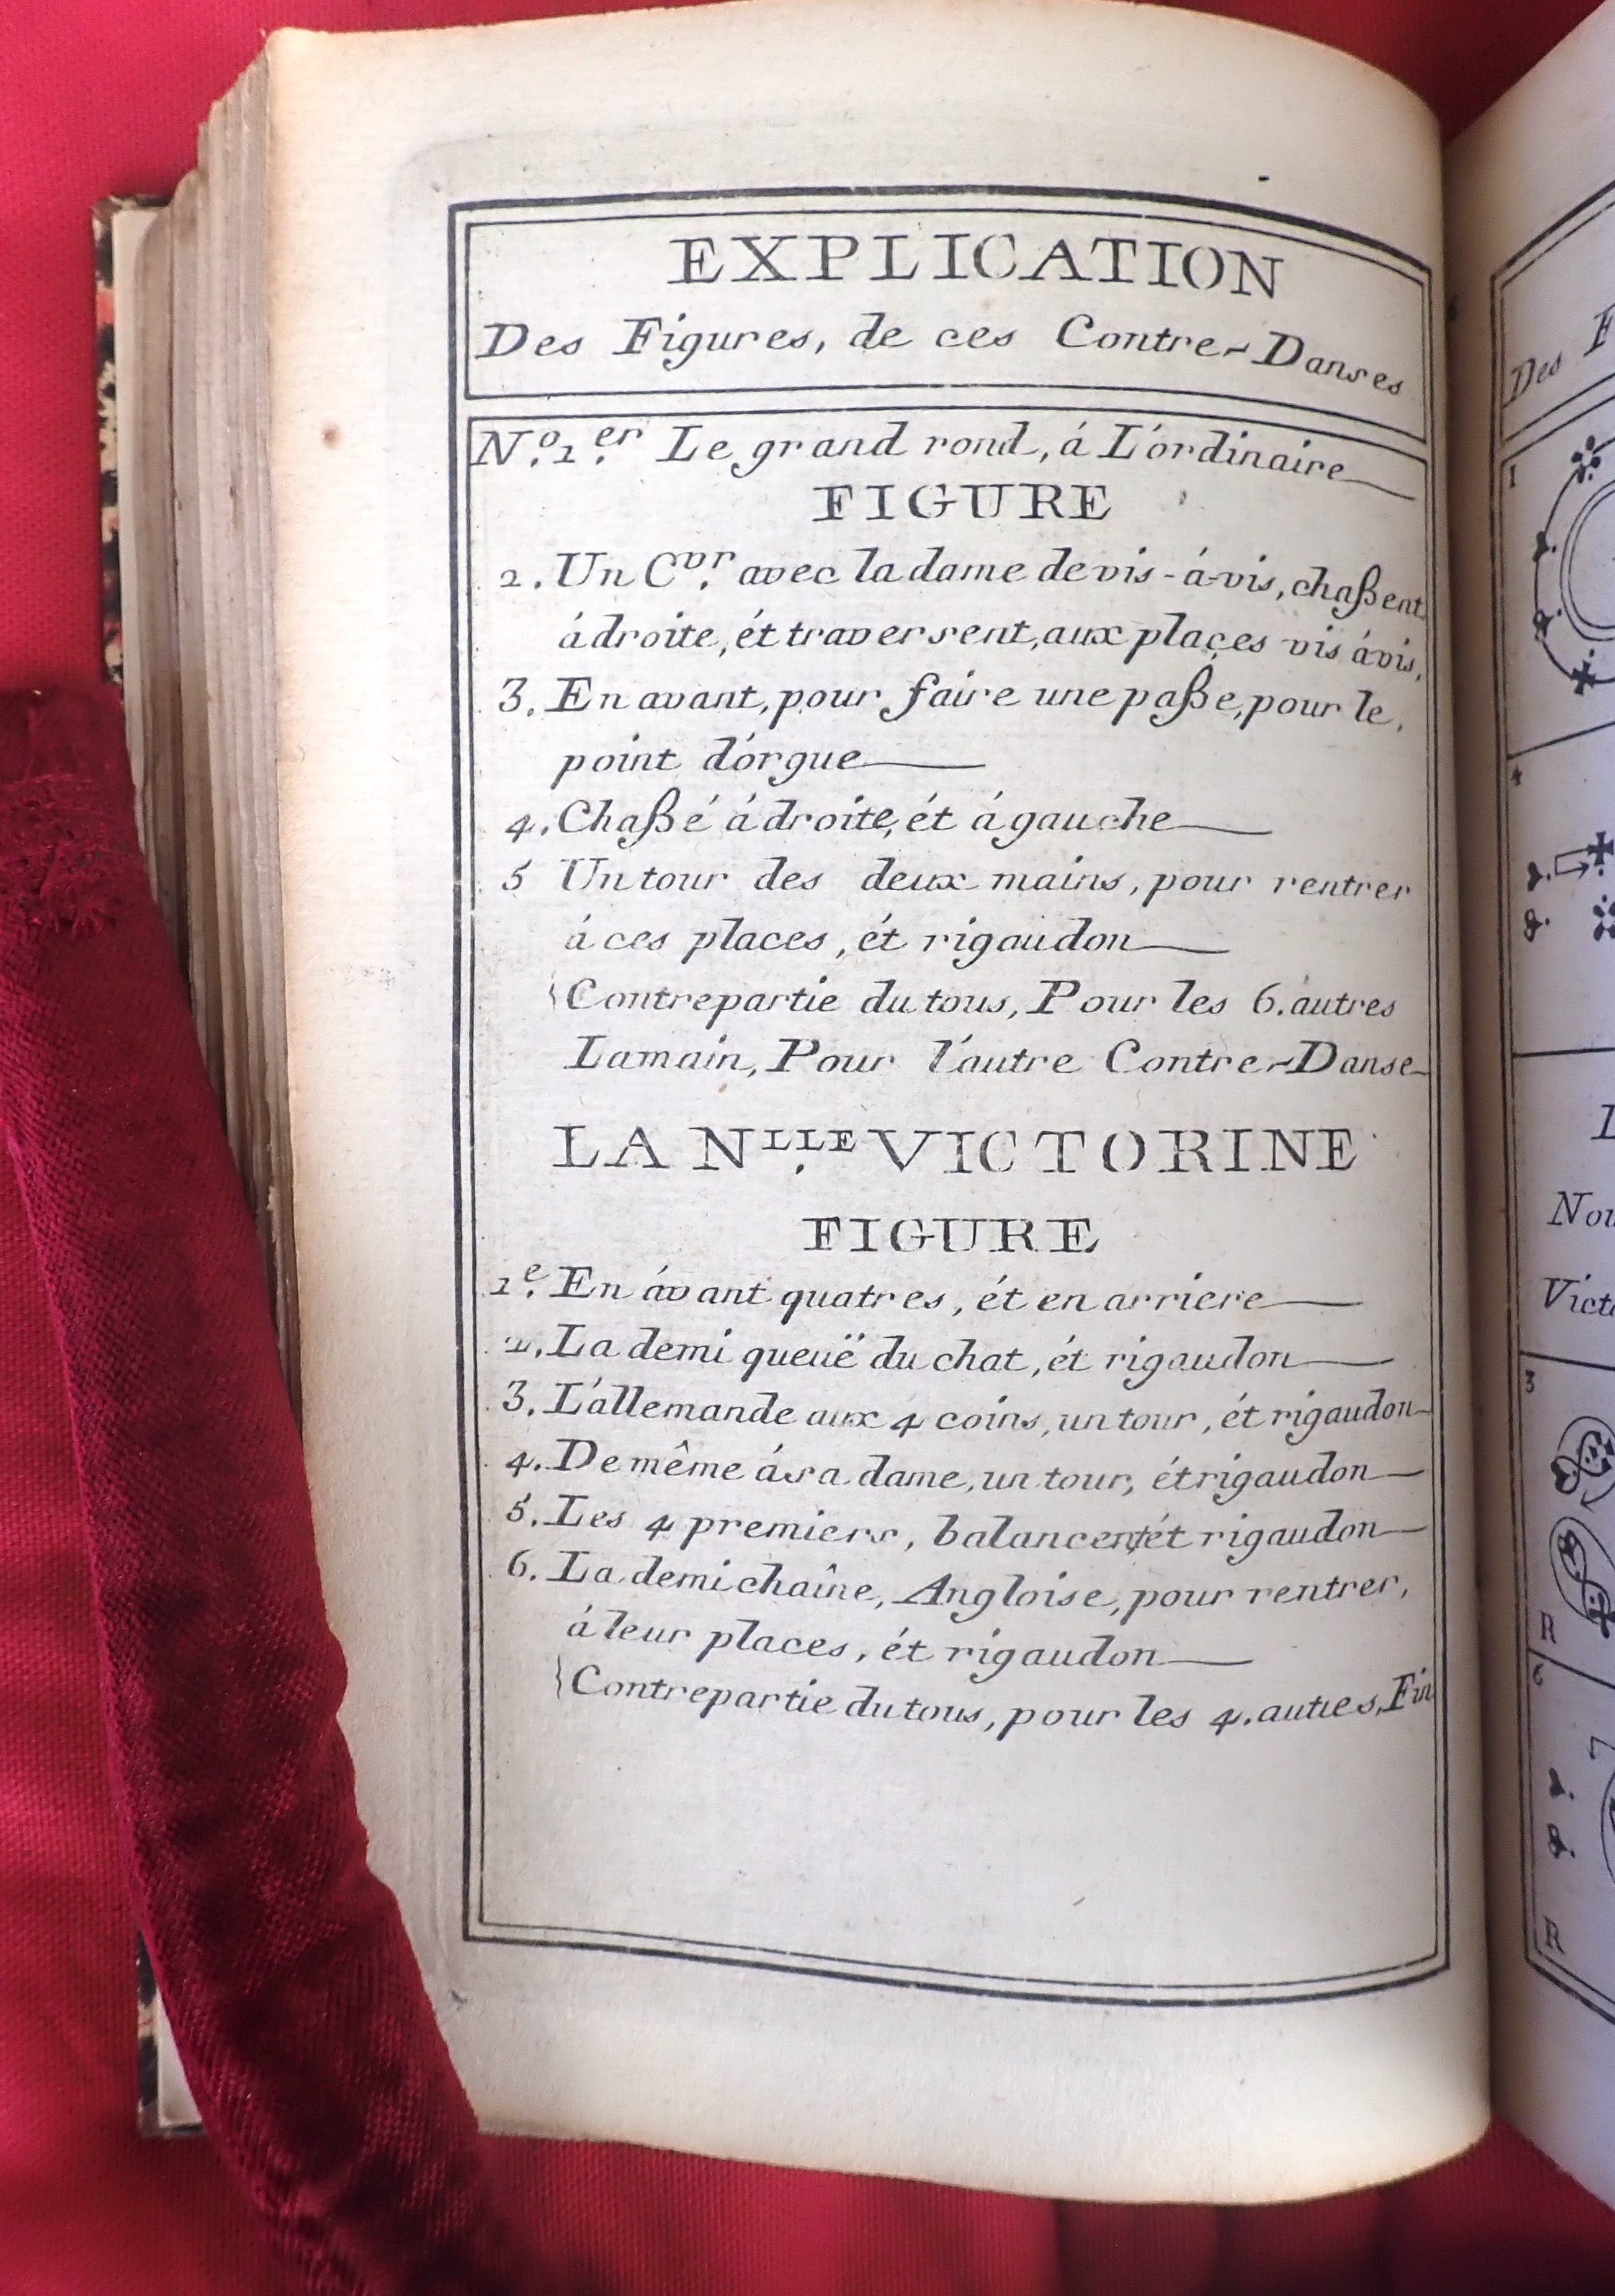 EXPLICATION
Des Figures, de ces Contre-Danses
N.º 1.er Le grand rond, á L'ordinaire
FIGURE
2. Un C.vr avec la dame de vis-á-vis, chaßent
á droite, ét traversent, aux places vis ávis,
3. En avant, pour faire une paße, pour le,
point d'orgue
4. Chaßé á droite, ét á gauche
5 Un tour des deux mains, pour rentrer
á ces places, ét rigaudon
{Contrepartie du tous, Pour les 6. autres
La main, Pour l'autre Contre-Danse
LA N.LLE VICTORINE
FIGURE
1.e En ávant quatres, ét en arriere
2. La demi queuë du chat, ét rigaudon
3. L'allemande aux 4 coins, un tour, ét rigaudon
4. De même á sa dame, un tour, ét rigaudon
5. Les 4 premiers, balancent, ét rigaudon
6. La demi chaîne, Angloise, pour rentrer,
á leur places, ét rigaudon
{Contrepartie du tous, pour les 4. autres, Fin
Des F
1
4
Nou
Vict
3
R
6
R